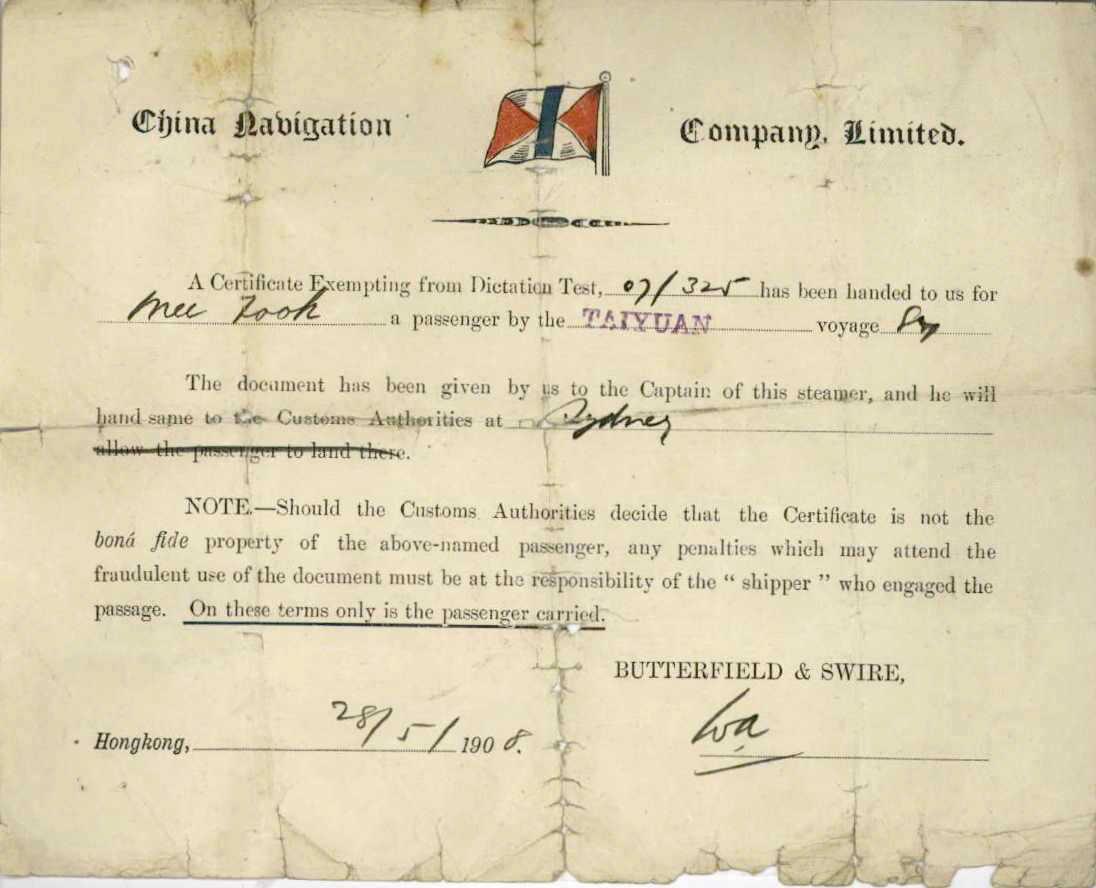 China Navigation Company, Limited.
A Certificate Exempting from Dictation Test, 07/325 has been handed to us for
Mee Fook a passenger by the TAIYUAN voyage
The document has been given by us to the Captain of this steamer, and he will
hand same to the Customs Authorities at Sydney
allow the passenger to land there.
NOTE.—Should the Customs Authorities decide that the Certificate is not the
boná fide property of the above-named passenger, any penalties which may attend the
fraudulent use of the document must be at the responsibility of the “ shipper ” who engaged the
passage. On these terms only is the passenger carried.
BUTTERFIELD & SWIRE,
Hongkong, 28/5/1908.